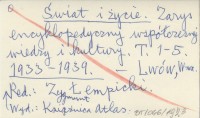 Świat i Życie. Zarys
encyklopedyczny współczesnej
wiedzy i kultury. T. 1-5.
1933-1939. — Lwów, W-wa.
Red.: Zygmunt Łempicki.
Wyd.: Książnica Atlas.